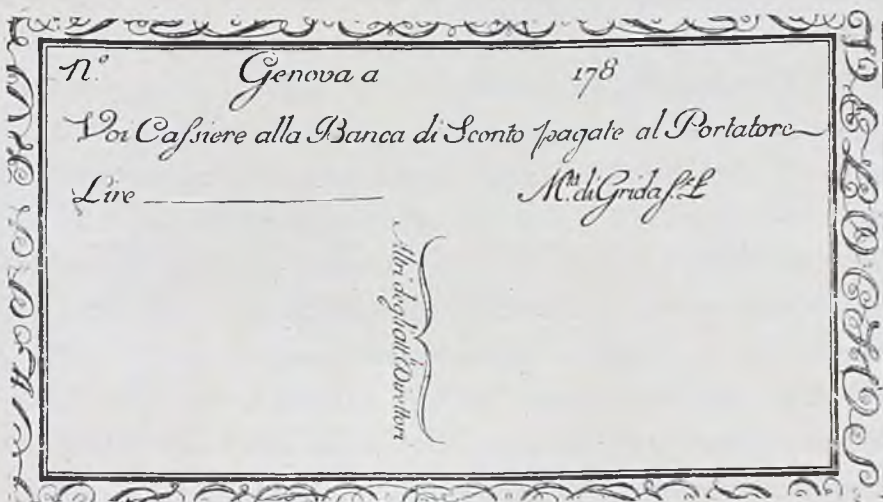 N.º Genova a 178
Voi Caſsiere alla Banca di Sconto pagate al Portatore
Lire M.ta di Grida
degli Direttori